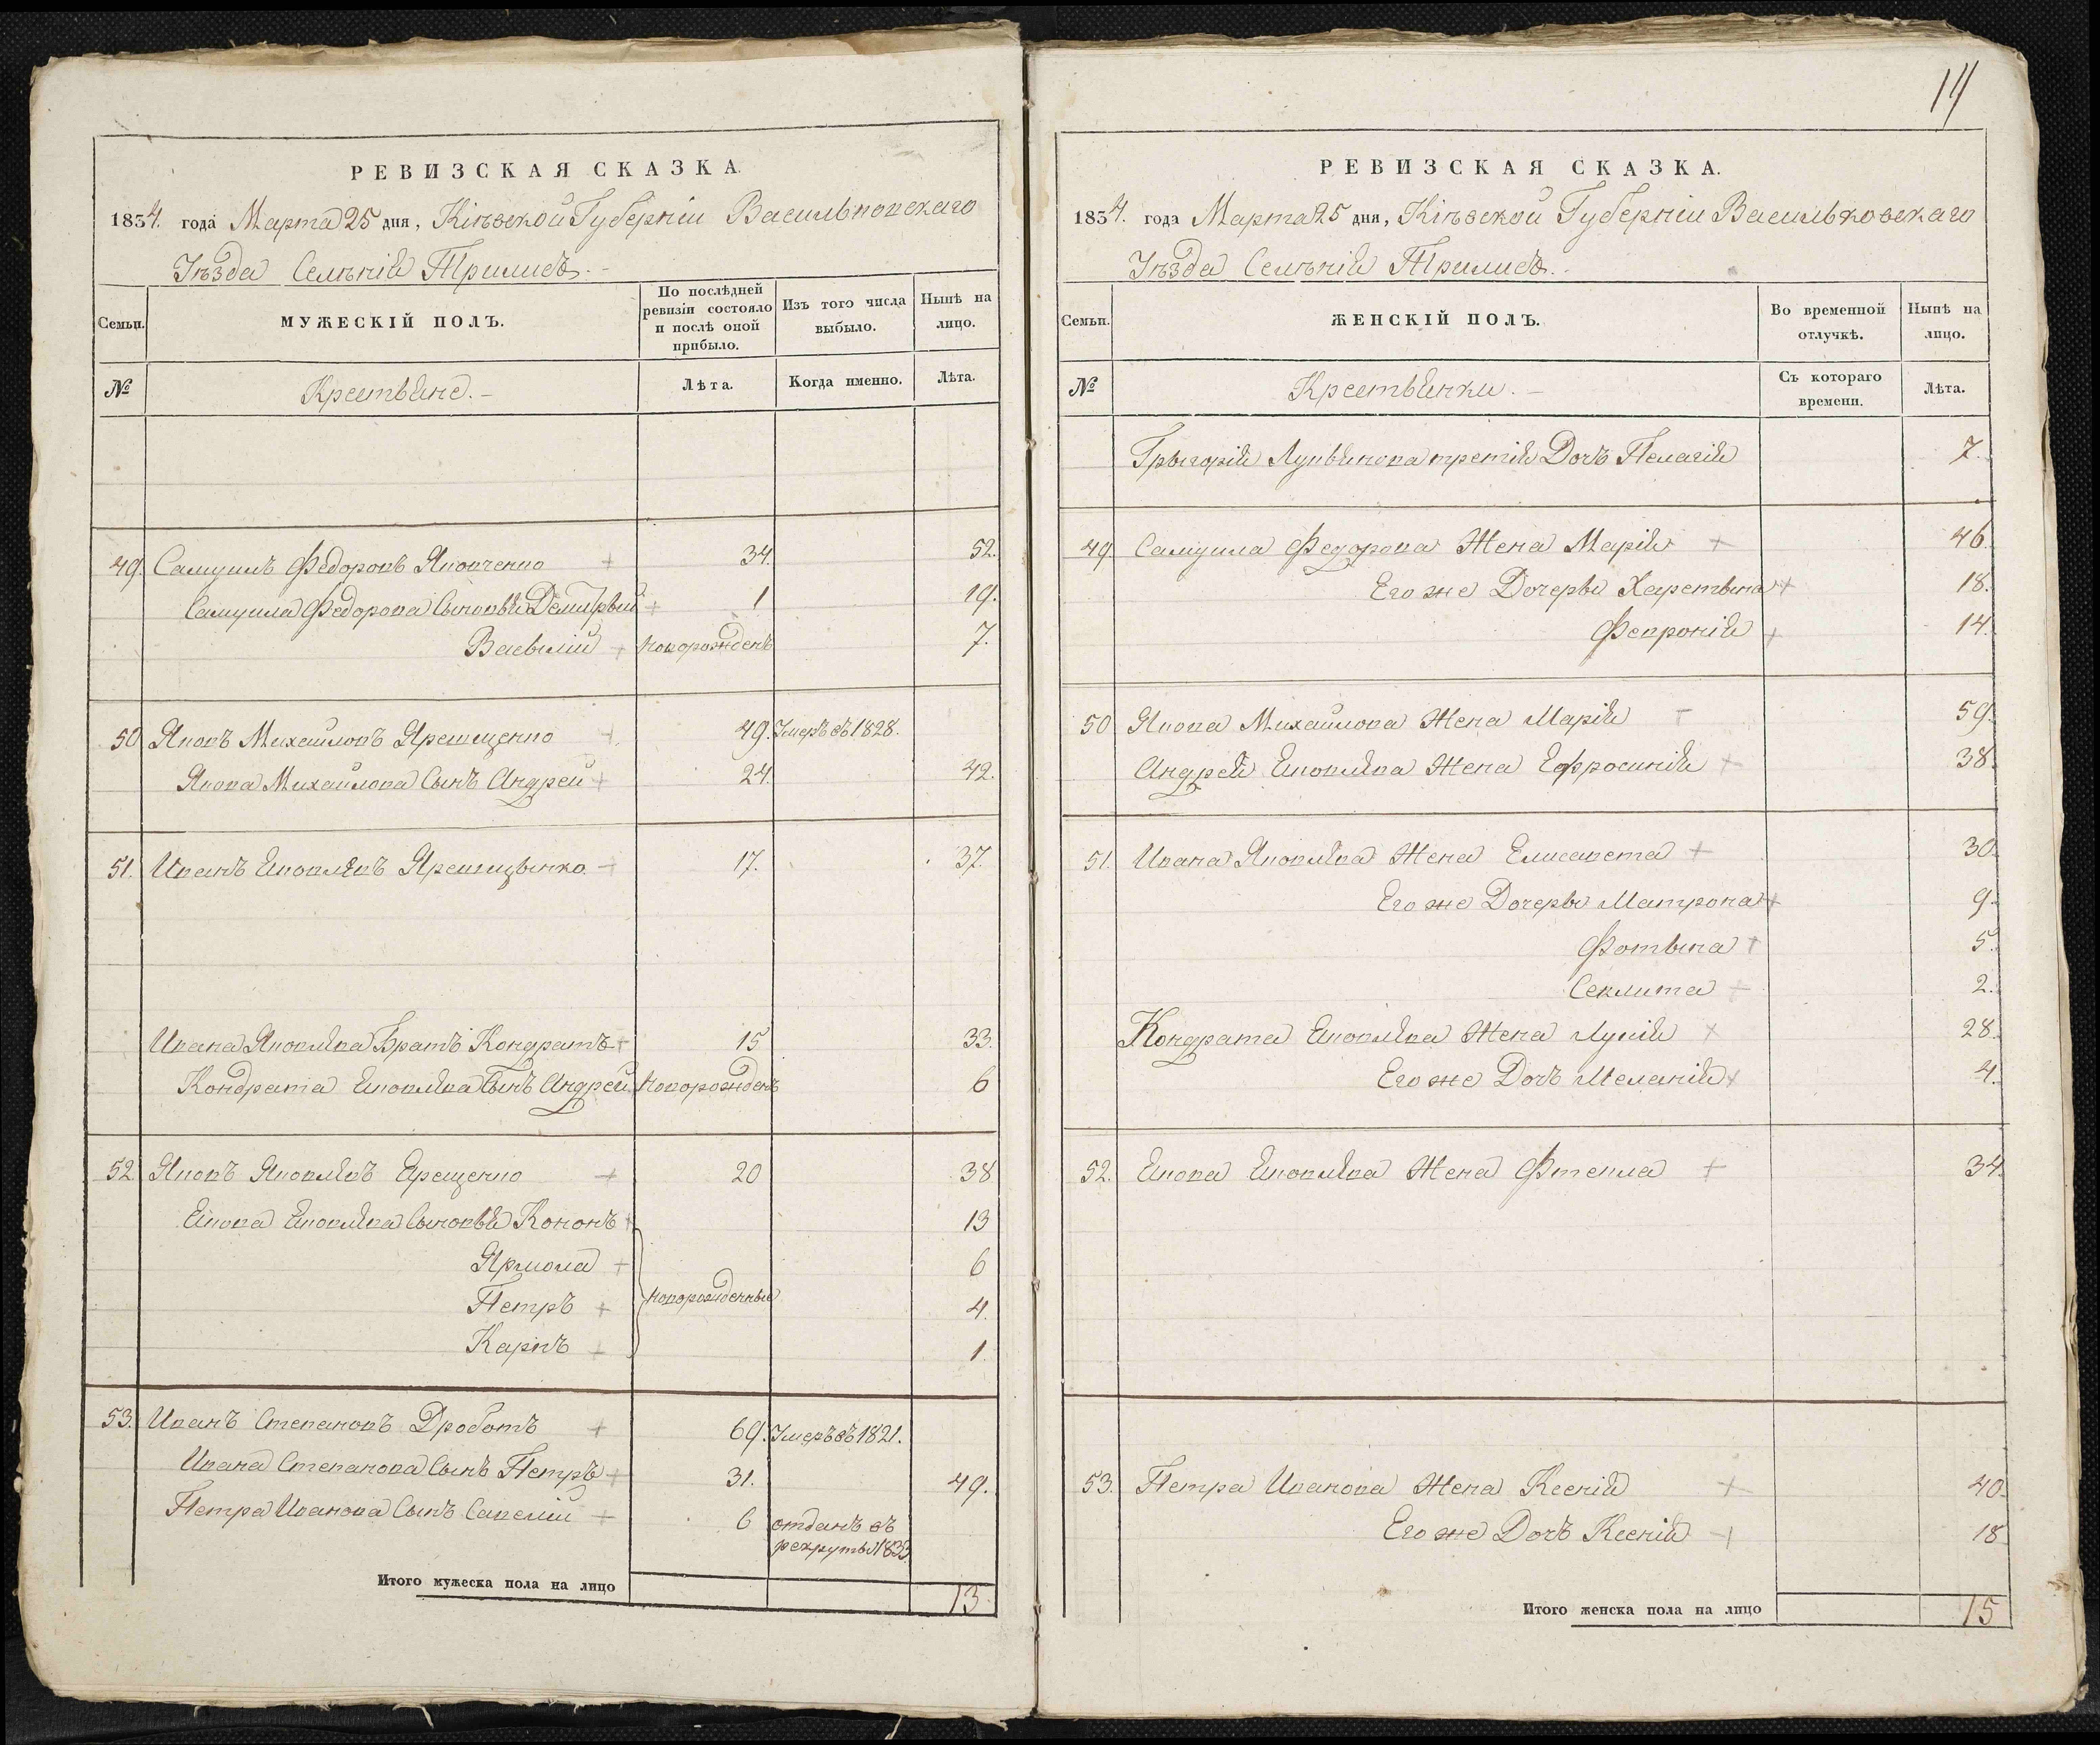 РЕВИЗСКАЯ СКАЗКА.
1834. года Марта 25 дня, Кіевской Губерніи Васильковскаго
Уѣзда Селенія Трилисъ.
Семьи.
МУЖЕСКІЙ ПОЛЪ.
По послѣдней ревизіи состояло и послѣ оной прибыло.
Изъ того числа выбыло.
Нынѣ на лицо.
№
Крестьяне.
Лѣта.
Когда именно.
Лѣта.
49. Самуилъ Федоровъ Яковченко 34. 52.
Самуила Федорова Сыновья Демитрый 1 19.
Васылій новорожденъ 7.
50 Яковъ Михайловъ Ярешщенко 49. Умеръ въ 1828.
Якова Михайлова Сынъ Андрей 24. 42.
51. Иванъ Яковлевъ Ярешщынко 17. 37.
Ивана Яковлева Братъ Кондратъ 15 33.
Кондрата Яковлева Сынъ Андрей новорожденъ 6
52 Яковъ Яковлевъ Ерещенко 20 38
Якова Яковлева Сыновья Кононъ 13
Ярмола 6
новорожденные
Петръ 4.
Карпъ 1.
53. Иванъ Степановъ Дроботъ 69. Умеръ въ 1821.
Ивана Степанова Сынъ Петръ 31. 49.
Петра Иванова Сынъ Савелій 6 отданъ въ
рекруты 1833
Итого мужеска пола на лицо 13
14
РЕВИЗСКАЯ СКАЗКА.
1834. года Марта 25 дня, Кіевской Губерніи Васильковскаго
Уѣзда Селенія Трилисъ.
Семьи.
ЖЕНСКІЙ ПОЛЪ.
Во временной отлучкѣ.
Нынѣ на лицо.
№
Крестьянки.
Съ котораго времени.
Лѣта.
Грыгорія Лукьянова третія Дочь Пелагія 7.
49 Самуила Федорова Жена Марія 46.
Его же Дочеры Харетына 18.
Февронія 14.
50 Якова Михайлова Жена Марія 59.
Андрея Яковлева Жена Ефросинія 38.
51. Ивана Яковлева Жена Елисавета 30.
Его же Дочеры Матрона 9.
Фотына 5.
Секлита 2.
Кондрата Яковлева Жена Лукія 28.
Его же Дочь Меланія 4.
52. Якова Яковлева Жена Фтекла 34.
53. Петра Иванова Жена Ксенія 40.
Его же Дочь Ксенія 18
Итого женска пола на лицо 15